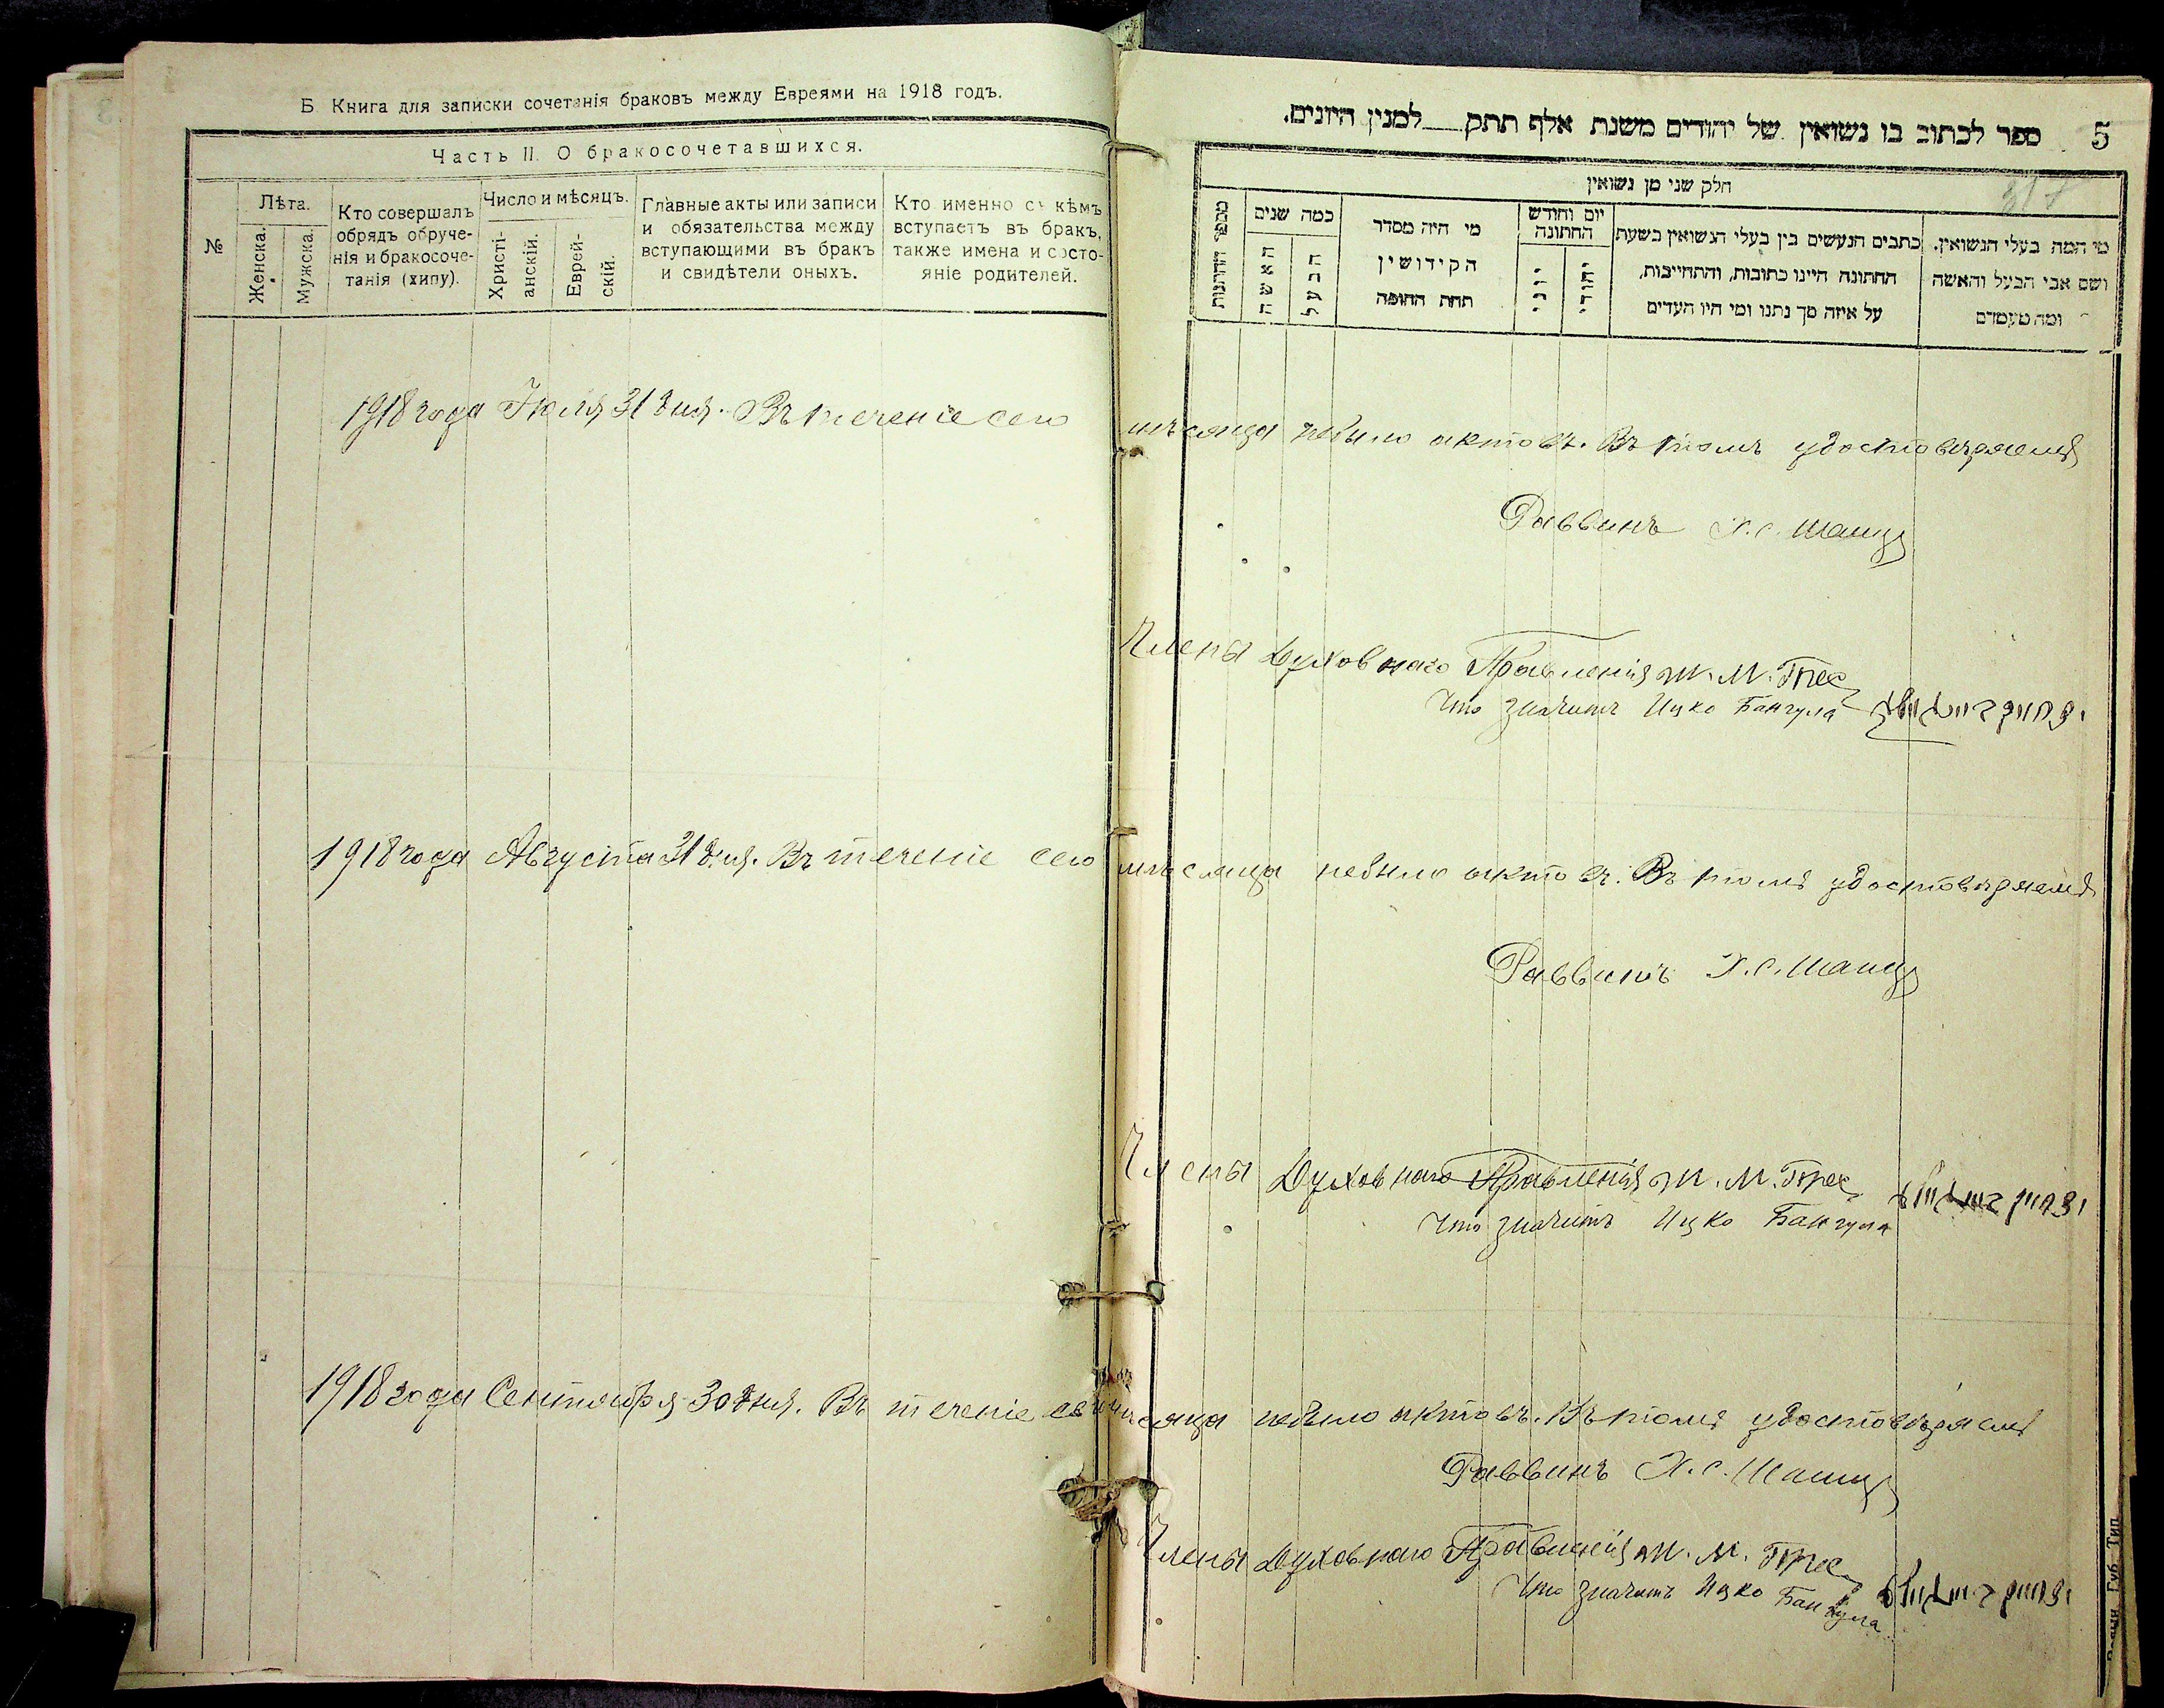 Б Книга для записки сочетанія браковъ между Евреями на 1918 годъ.
Часть II. О бракосочетавшихся.
№
Лѣта.
Женска.
Мужска.
Кто совершалъ
обрядъ обруче-
нія и бракосоче-
танія (хипу).
Число и мѣсяцъ.
Христі-
анскій.
Еврей-
скій.
Главные акты или записи
и обязательства между
вступающими въ бракъ
и свидѣтели оныхъ.
Кто именно съ кѣмъ
вступаетъ въ бракъ,
также имена и состо-
яніе родителей.
5
ספר לכתוב בו נשואין של יהודים משנת אלף תתק למנין היונים.
חלק שני מן נשואין
כמה שנים
האשה
הבעל
מי היה מסדר
הקידושין
תחת החופה
יום וחודש
החתונה
יוני
יהודי
כתבים הנעשים בין בעלי הנשואין בשעת
החתונה היינו כתובות, והתחייבות,
על איזה סך נתנו ומי היו העדים
מי המה בעלי הנשואין.
ושם אבי הבעל והאשה
ומה מעמדם
1918 года Іюля 31 дня. Въ теченіе сего мѣсяца небыло актовъ. Въ томъ удостовѣряемъ
Раввинъ Х. С. Шанц
Члены Духовнаго Правленія М. Трес
Что значитъ Ицко Бангула
1918 года Августа 31 дня. Въ теченіе сего мѣсяца небыло актовъ. Въ томъ удостовѣряемъ
Раввинъ Х. С. Шанц
Члены Духовнаго Правленія М. Трес
Что значитъ Ицко Бангула
1918 года Сентября 30 дня. Въ теченіе сего мѣсяца небыло актовъ. Въ томъ удостовѣряемъ
Раввинъ Х. С. Шанц
Члены Духовнаго Правленія М. Трес
Что значитъ Ицко Бангула
Губ. Тип.